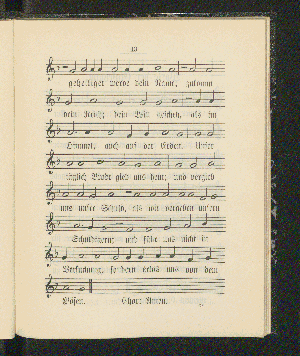 13
geheiliget werde dein Name, zukomm
dein Reich; dein Will gescheh, als im
Himmel, auch auf der Erden. Unser
täglich Brodt gieb uns heut; und vergieb
uns unsre Schuld, als wir vergeben unsern
Schuldigern; und führ uns nicht in
Versuchung, sondern erlös uns von dem
Bösen. Chor: Amen.